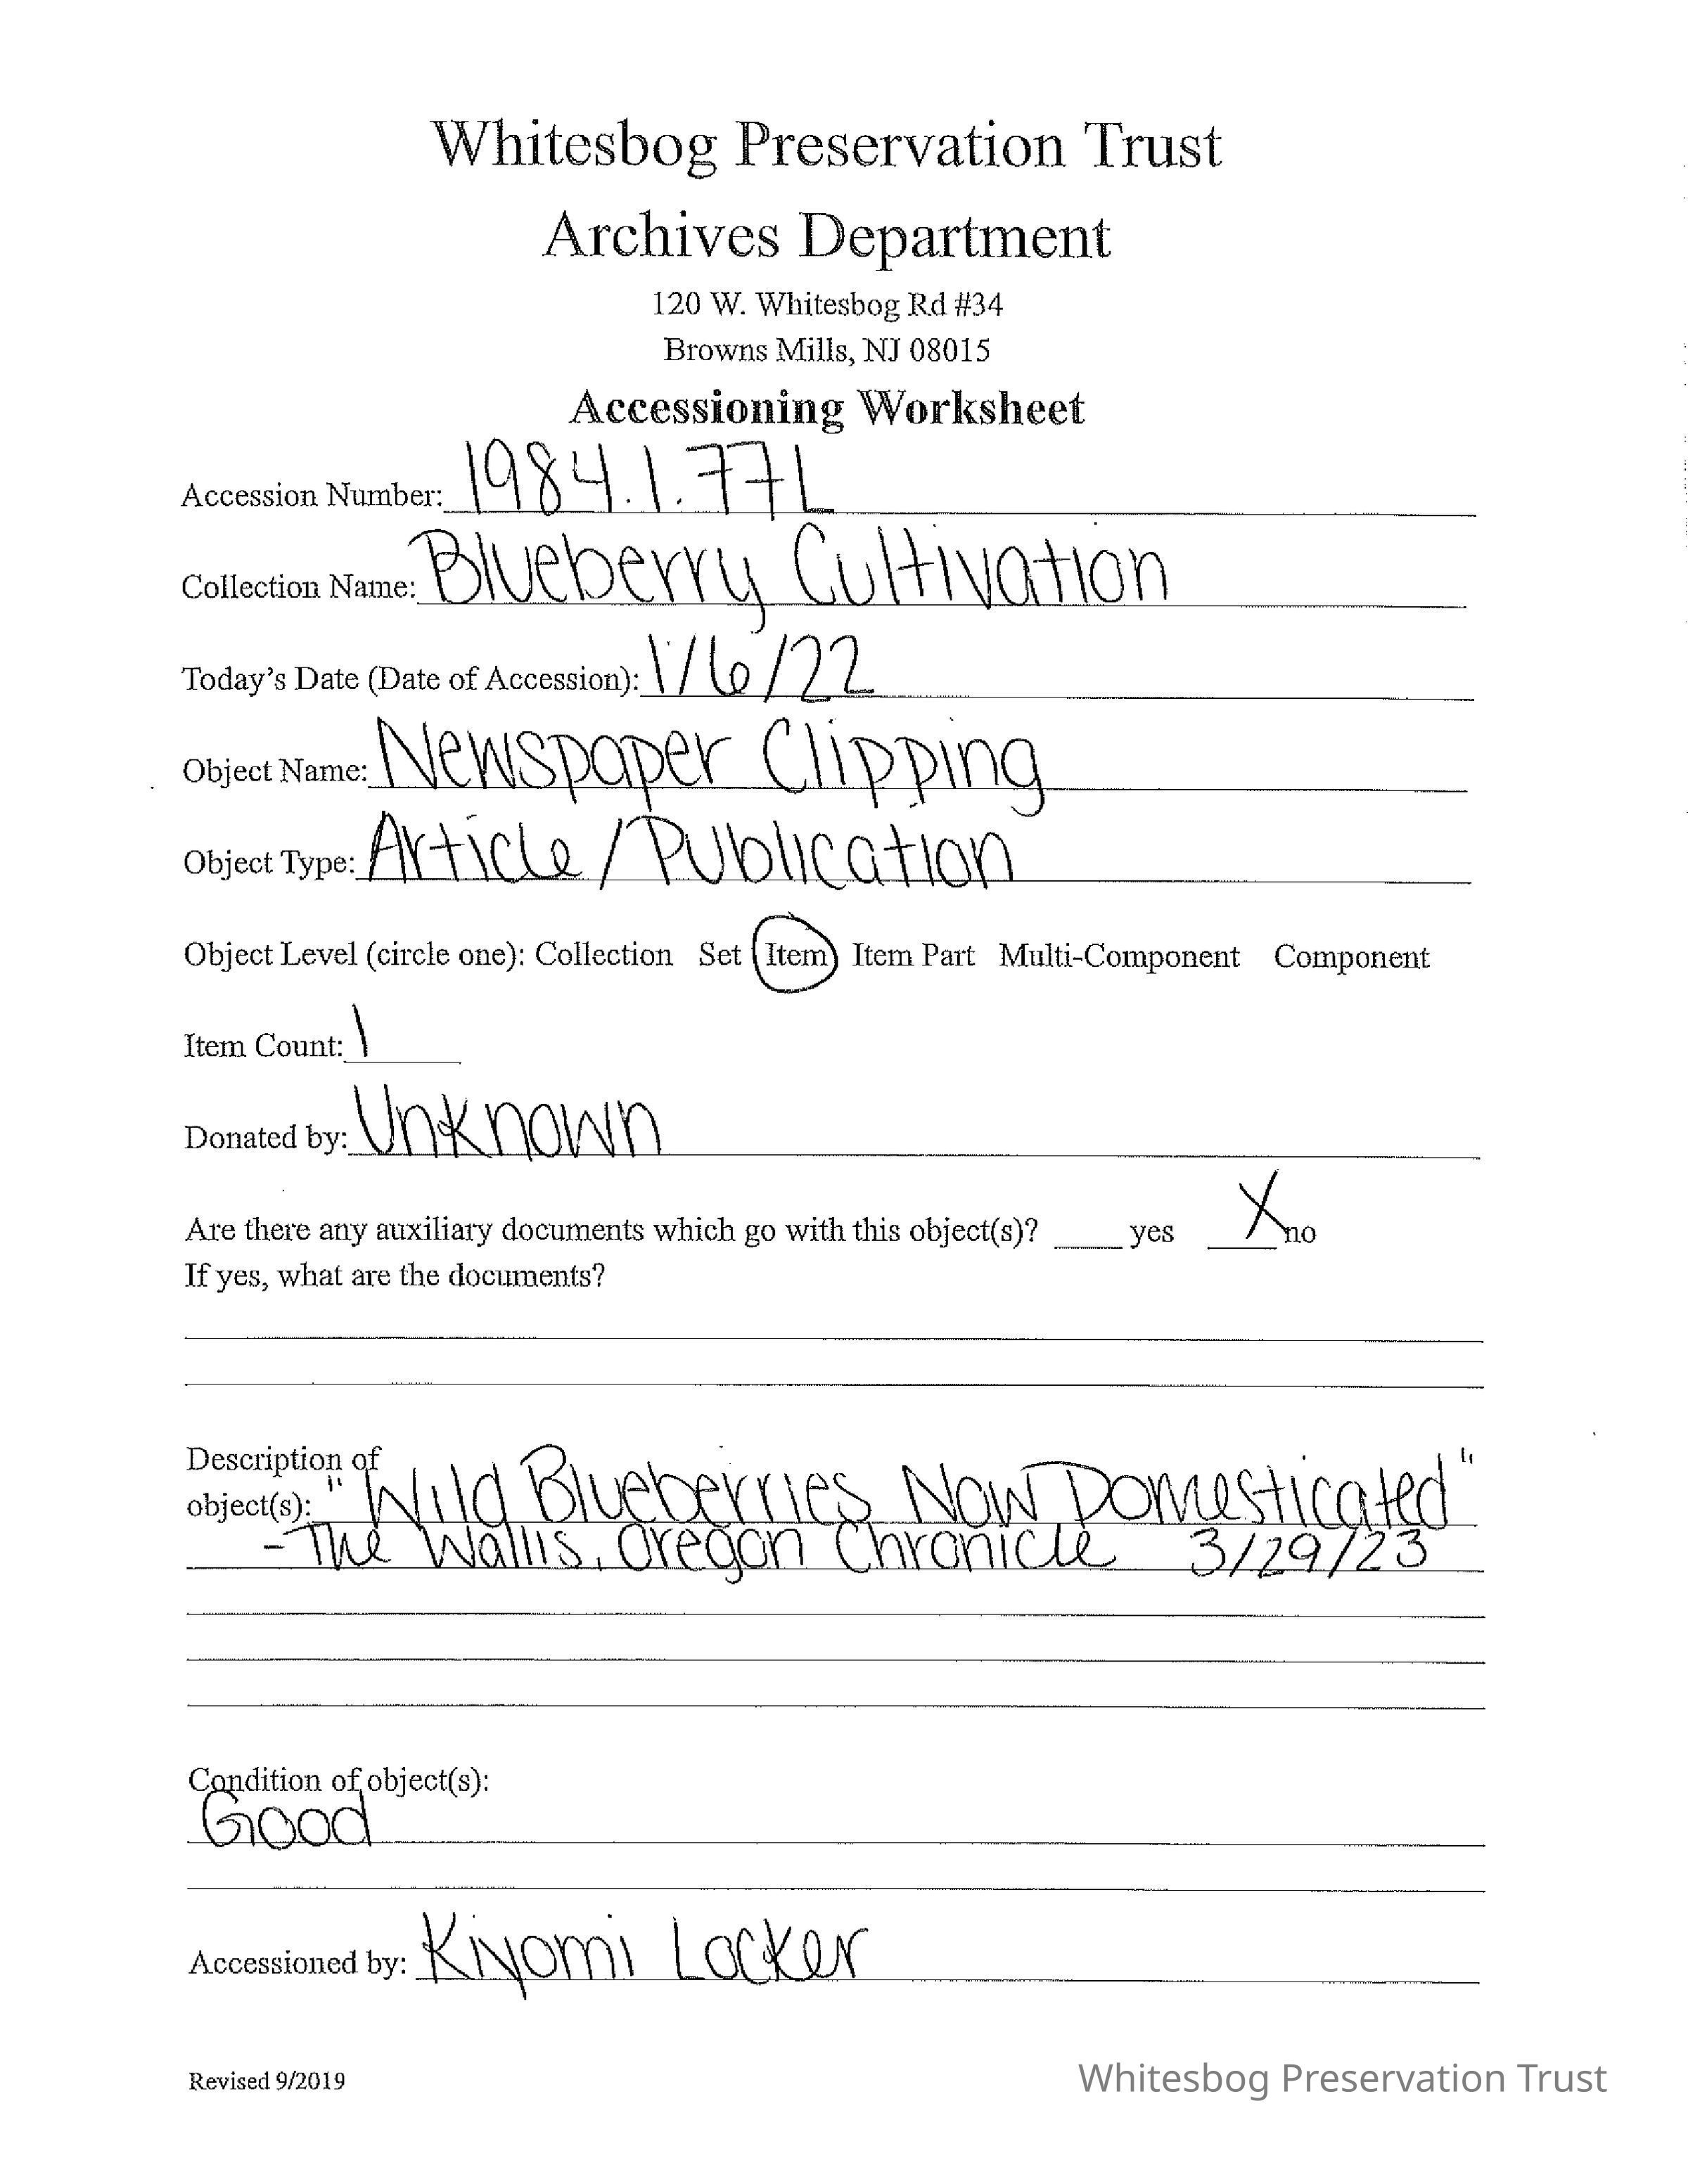 Whitesbog Preservation Trust
Archives Department
120 W. Whitesbog Rd #34
Browns Mills, NJ 08015
Accessioning Worksheet
Accession Number: 1984.1.77L
Collection Name: Blueberry Cultivation
Today's Date (Date of Accession): 1/6/22
Object Name: Newspaper Clipping
Object Type: Article/Publication
Object Level (circle one): Collection Set Item Item Part Multi-Component Component
Item Count: 1
Donated by: Unknown
Are there any auxiliary documents which go with this object(s)? ____ yes X no
If yes, what are the documents?
Description of
object(s): "Wild Blueberries Now Domesticated"
- The Wallis, Oregon Chronicle 3/29/23
Condition of object(s):
Good
Accessioned by: Kiyomi Locker
Revised 9/2019
Whitesbog Preservation Trust